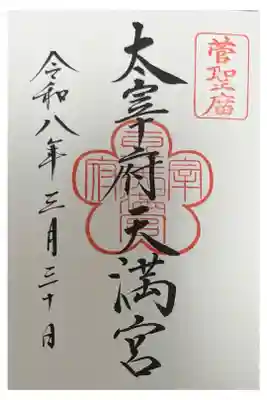 菅聖庿
太宰府天満宮
令和八年三月三十日